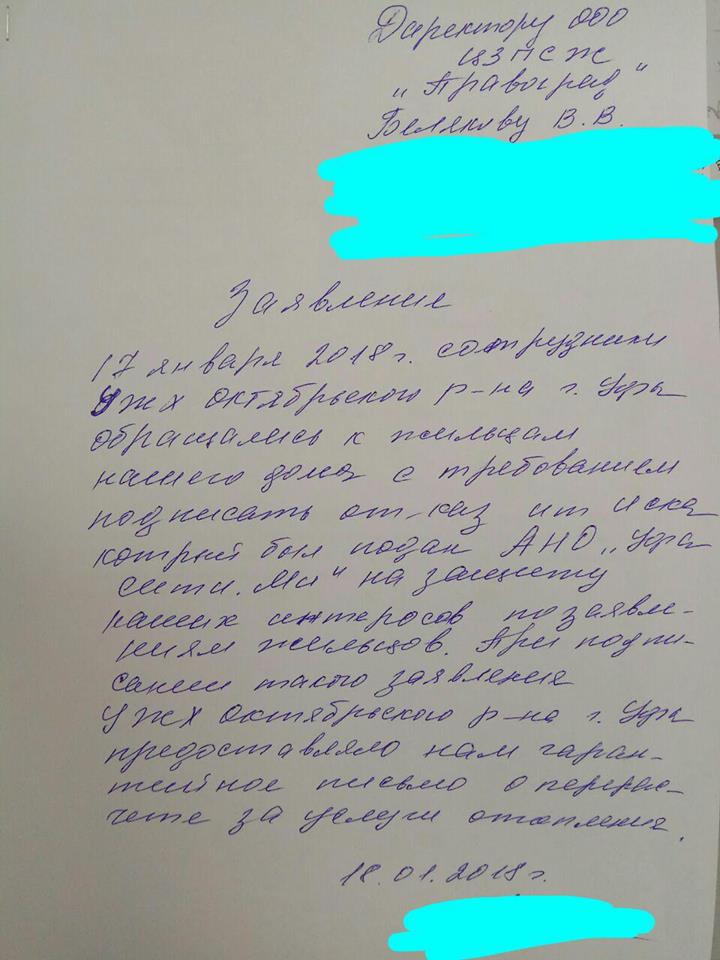 Директору ООО
ЦЗПСЖ
"Правоград"
Белякову В.В.
Заявление
17 января 2018 г. сотрудники
УЖХ Октябрьского р-на г. Уфы
обращались к жильцам
нашего дома с требованием
подписать отказ от иска
котрый был подан АНО "Уфа
сити. Мы" на защиту
наших интеросов по заявле-
ниям жильцов. При подпи-
сании такого заявления
УЖХ Октябрьского р-на г. Уфы
предоставляло нам гаран-
тийное письмо о перерас-
чете за услуги отопления.
18.01.2018 г.